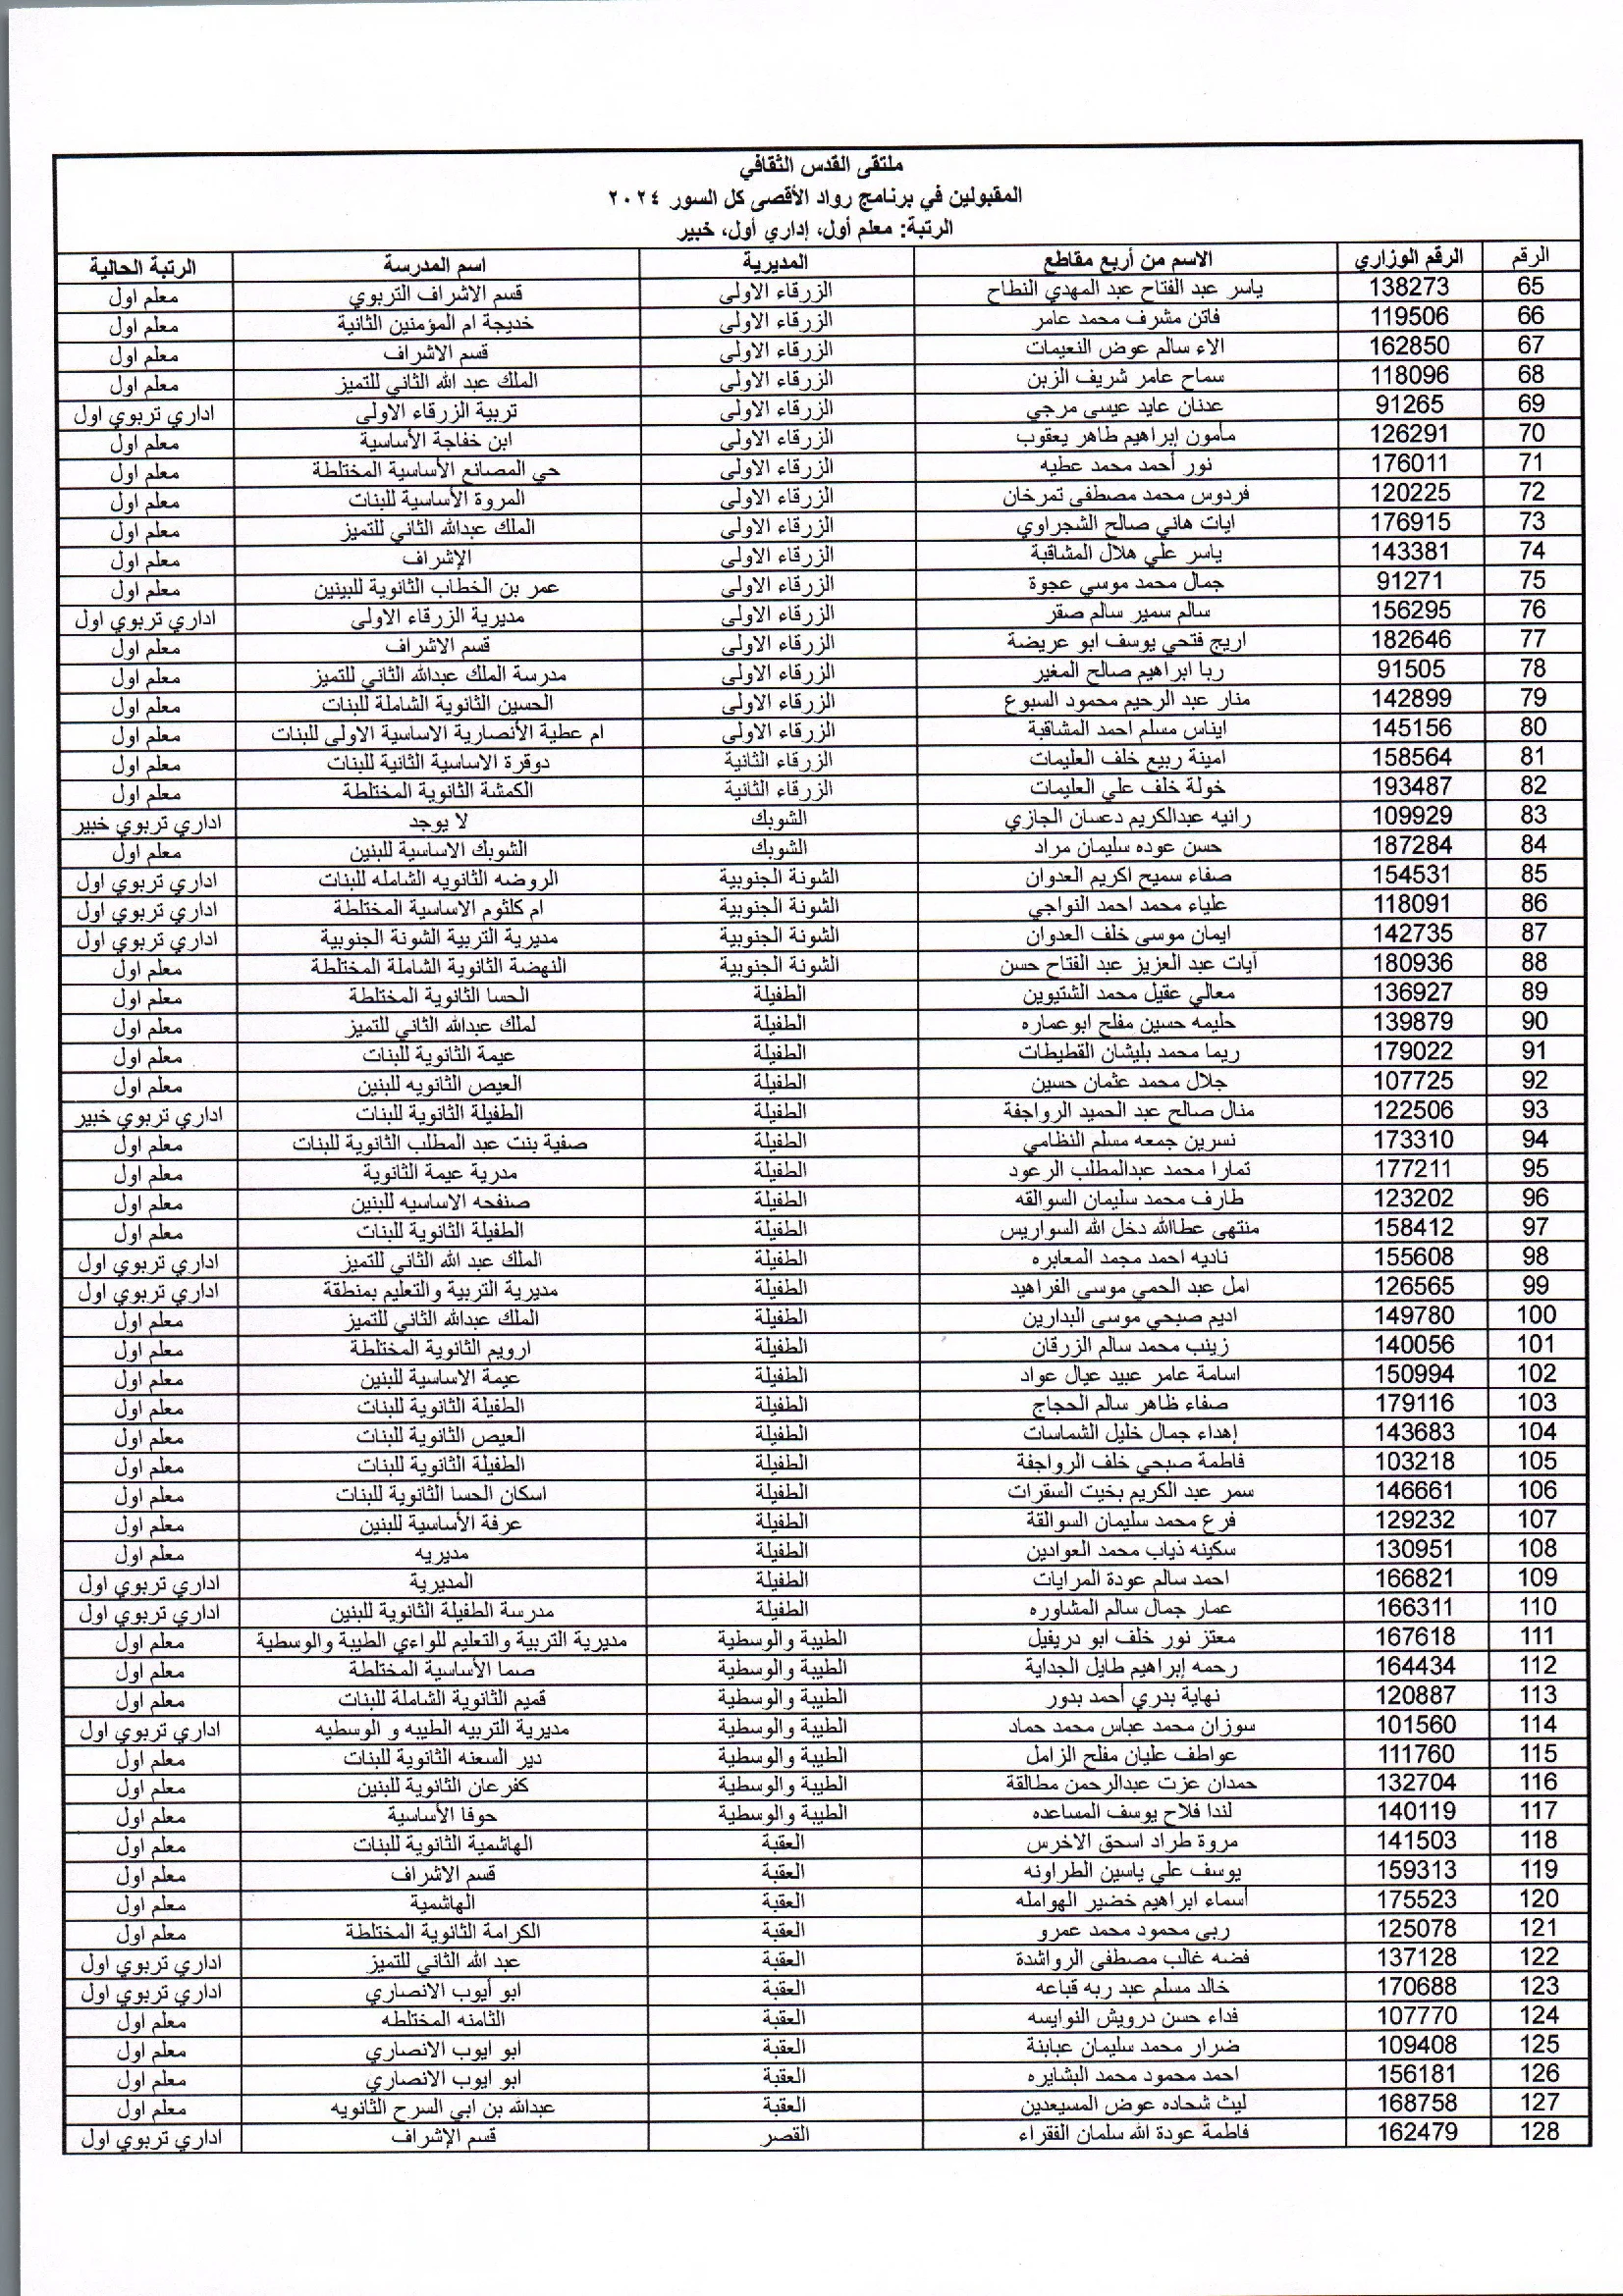 ملتقى القدس الثقافي
المقبولين في برنامج رواد الأقصى كل السور ٢٠٢٤
الرتبة: معلم أول، إداري أول، خبير
الرقم الرقم الوزاري الاسم من أربع مقاطع المديرية اسم المدرسة الرتبة الحالية
65 138273 ياسر عبد الفتاح عبد المهدي النطاح الزرقاء الاولى قسم الاشراف التربوي معلم اول
66 119506 فاتن مشرف محمد عامر الزرقاء الاولى خديجة ام المؤمنين الثانية معلم اول
67 162850 الاء سالم عوض النعيمات الزرقاء الاولى قسم الاشراف معلم اول
68 118096 سماح عامر شريف الزبن الزرقاء الاولى الملك عبد الله الثاني للتميز معلم اول
69 91265 عدنان عايد عيسى مرجي الزرقاء الاولى تربية الزرقاء الاولى اداري تربوي اول
70 126291 مأمون إبراهيم طاهر يعقوب الزرقاء الاولى ابن خفاجة الأساسية معلم اول
71 176011 نور أحمد محمد عطيه الزرقاء الاولى حي المصانع الأساسية المختلطة معلم اول
72 120225 فردوس محمد مصطفى تمرخان الزرقاء الاولى المروة الأساسية للبنات معلم اول
73 176915 ايات هاني صالح الشجراوي الزرقاء الاولى الملك عبدالله الثاني للتميز معلم اول
74 143381 ياسر علي هلال المشاقبة الزرقاء الاولى الإشراف معلم اول
75 91271 جمال محمد موسي عجوة الزرقاء الاولى عمر بن الخطاب الثانوية للبينين معلم اول
76 156295 سالم سمير سالم صقر الزرقاء الاولى مديرية الزرقاء الاولى اداري تربوي اول
77 182646 اريج فتحي يوسف ابو عريضة الزرقاء الاولى قسم الاشراف معلم اول
78 91505 ربا ابراهيم صالح المغير الزرقاء الاولى مدرسة الملك عبدالله الثاني للتميز معلم اول
79 142899 منار عبد الرحيم محمود السبوع الزرقاء الاولى الحسين الثانوية الشاملة للبنات معلم اول
80 145156 ايناس مسلم احمد المشاقبة الزرقاء الاولى ام عطية الأنصارية الاساسية الاولى للبنات معلم اول
81 158564 امينة ربيع خلف العليمات الزرقاء الثانية دوقرة الاساسية الثانية للبنات معلم اول
82 193487 خولة خلف علي العليمات الزرقاء الثانية الكمشة الثانوية المختلطة معلم اول
83 109929 رانيه عبدالكريم دعسان الجازي الشوبك لا يوجد اداري تربوي خبير
84 187284 حسن عوده سليمان مراد الشوبك الشوبك الاساسية للبنين معلم اول
85 154531 صفاء سميح اكريم العدوان الشونة الجنوبية الروضه الثانويه الشامله للبنات اداري تربوي اول
86 118091 علياء محمد احمد النواجي الشونة الجنوبية ام كلثوم الاساسية المختلطة اداري تربوي اول
87 142735 ايمان موسى خلف العدوان الشونة الجنوبية مديرية التربية الشونة الجنوبية اداري تربوي اول
88 180936 آيات عبد العزيز عبد الفتاح حسن الشونة الجنوبية النهضة الثانوية الشاملة المختلطة معلم اول
89 136927 معالي عقيل محمد الشتيوين الطفيلة الحسا الثانوية المختلطة معلم اول
90 139879 حليمه حسين مفلح ابوعماره الطفيلة لملك عبدالله الثاني للتميز معلم اول
91 179022 ريما محمد بليشان القطيطات الطفيلة عيمة الثانوية للبنات معلم اول
92 107725 جلال محمد عثمان حسين الطفيلة العيص الثانويه للبنين معلم اول
93 122506 منال صالح عبد الحميد الرواجفة الطفيلة الطفيلة الثانوية للبنات اداري تربوي خبير
94 173310 نسرين جمعه مسلم النظامي الطفيلة صفية بنت عبد المطلب الثانوية للبنات معلم اول
95 177211 تمارا محمد عبدالمطلب الرعود الطفيلة مدرية عيمة الثانوية معلم اول
96 123202 طارف محمد سليمان السوالقه الطفيلة صنفحه الاساسيه للبنين معلم اول
97 158412 منتهى عطاالله دخل الله السواريس الطفيلة الطفيلة الثانوية للبنات معلم اول
98 155608 ناديه احمد مجمد المعابره الطفيلة الملك عبد الله الثاني للتميز اداري تربوي اول
99 126565 امل عبد الحمي موسى الفراهيد الطفيلة مديرية التربية والتعليم بمنطقة اداري تربوي اول
100 149780 اديم صبحي موسى البدارين الطفيلة الملك عبدالله الثاني للتميز معلم اول
101 140056 زينب محمد سالم الزرقان الطفيلة ارويم الثانوية المختلطة معلم اول
102 150994 اسامة عامر عبيد عيال عواد الطفيلة عيمة الاساسية للبنين معلم اول
103 179116 صفاء ظاهر سالم الحجاج الطفيلة الطفيلة الثانوية للبنات معلم اول
104 143683 إهداء جمال خليل الشماسات الطفيلة العيص الثانوية للبنات معلم اول
105 103218 فاطمة صبحي خلف الرواجفة الطفيلة الطفيلة الثانوية للبنات معلم اول
106 146661 سمر عبد الكريم بخيت السقرات الطفيلة اسكان الحسا الثانوية للبنات معلم اول
107 129232 فرع محمد سليمان السوالقة الطفيلة عرفة الأساسية للبنين معلم اول
108 130951 سكينه ذياب محمد العوادين الطفيلة مديريه معلم اول
109 166821 احمد سالم عودة المرايات الطفيلة المديرية اداري تربوي اول
110 166311 عمار جمال سالم المشاوره الطفيلة مدرسة الطفيلة الثانوية للبنين اداري تربوي اول
111 167618 معتز نور خلف ابو دريفيل الطيبة والوسطية مديرية التربية والتعليم للواءي الطيبة والوسطية معلم اول
112 164434 رحمه إبراهيم طايل الجداية الطيبة والوسطية صما الأساسية المختلطة معلم اول
113 120887 نهاية بدري أحمد بدور الطيبة والوسطية قميم الثانوية الشاملة للبنات معلم اول
114 101560 سوزان محمد عباس محمد حماد الطيبة والوسطية مديرية التربيه الطيبه و الوسطيه اداري تربوي اول
115 111760 عواطف عليان مفلح الزامل الطيبة والوسطية دير السعنه الثانوية للبنات معلم اول
116 132704 حمدان عزت عبدالرحمن مطالقة الطيبة والوسطية كفرعان الثانوية للبنين معلم اول
117 140119 لندا فلاح يوسف المساعده الطيبة والوسطية حوفا الأساسية معلم اول
118 141503 مروة طراد اسحق الاخرس العقبة الهاشمية الثانوية للبنات معلم اول
119 159313 يوسف علي ياسين الطراونه العقبة قسم الاشراف معلم اول
120 175523 أسماء ابراهيم خضير الهوامله العقبة الهاشمية معلم اول
121 125078 ربي محمود محمد عمرو العقبة الكرامة الثانوية المختلطة معلم اول
122 137128 فضه غالب مصطفى الرواشدة العقبة عبد الله الثاني للتميز اداري تربوي اول
123 170688 خالد مسلم عبد ربه قباعه العقبة ابو أيوب الانصاري اداري تربوي اول
124 107770 فداء حسن درويش النوايسه العقبة الثامنه المختلطه معلم اول
125 109408 ضرار محمد سليمان عبابنة العقبة ابو ايوب الانصاري معلم اول
126 156181 احمد محمود محمد البشايره العقبة ابو ايوب الانصاري معلم اول
127 168758 ليث شحاده عوض المسيعدين العقبة عبدالله بن ابي السرح الثانويه معلم اول
128 162479 فاطمة عودة الله سلمان الفقراء القصر قسم الإشراف اداري تربوي اول